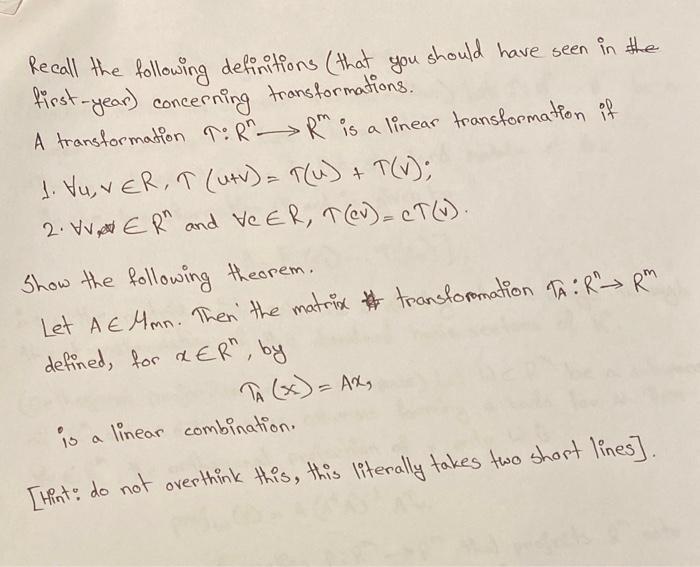 Recall the following definitions (that you should have seen in the
first-year) concerning transformations.
A transformation T: Rⁿ → Rᵐ is a linear transformation if
1. ∀u, v ∈ R, T (u+v) = T(u) + T(v);
2. ∀v ∈ Rⁿ and ∀c ∈ R, T(cv) = cT(v).
Show the following theorem.
Let A ∈ Mmn. Then the matrix transformation T_A : Rⁿ → Rᵐ
defined, for x ∈ Rⁿ, by
T_A (x) = Ax,
is a linear combination.
[Hint: do not overthink this, this literally takes two short lines].